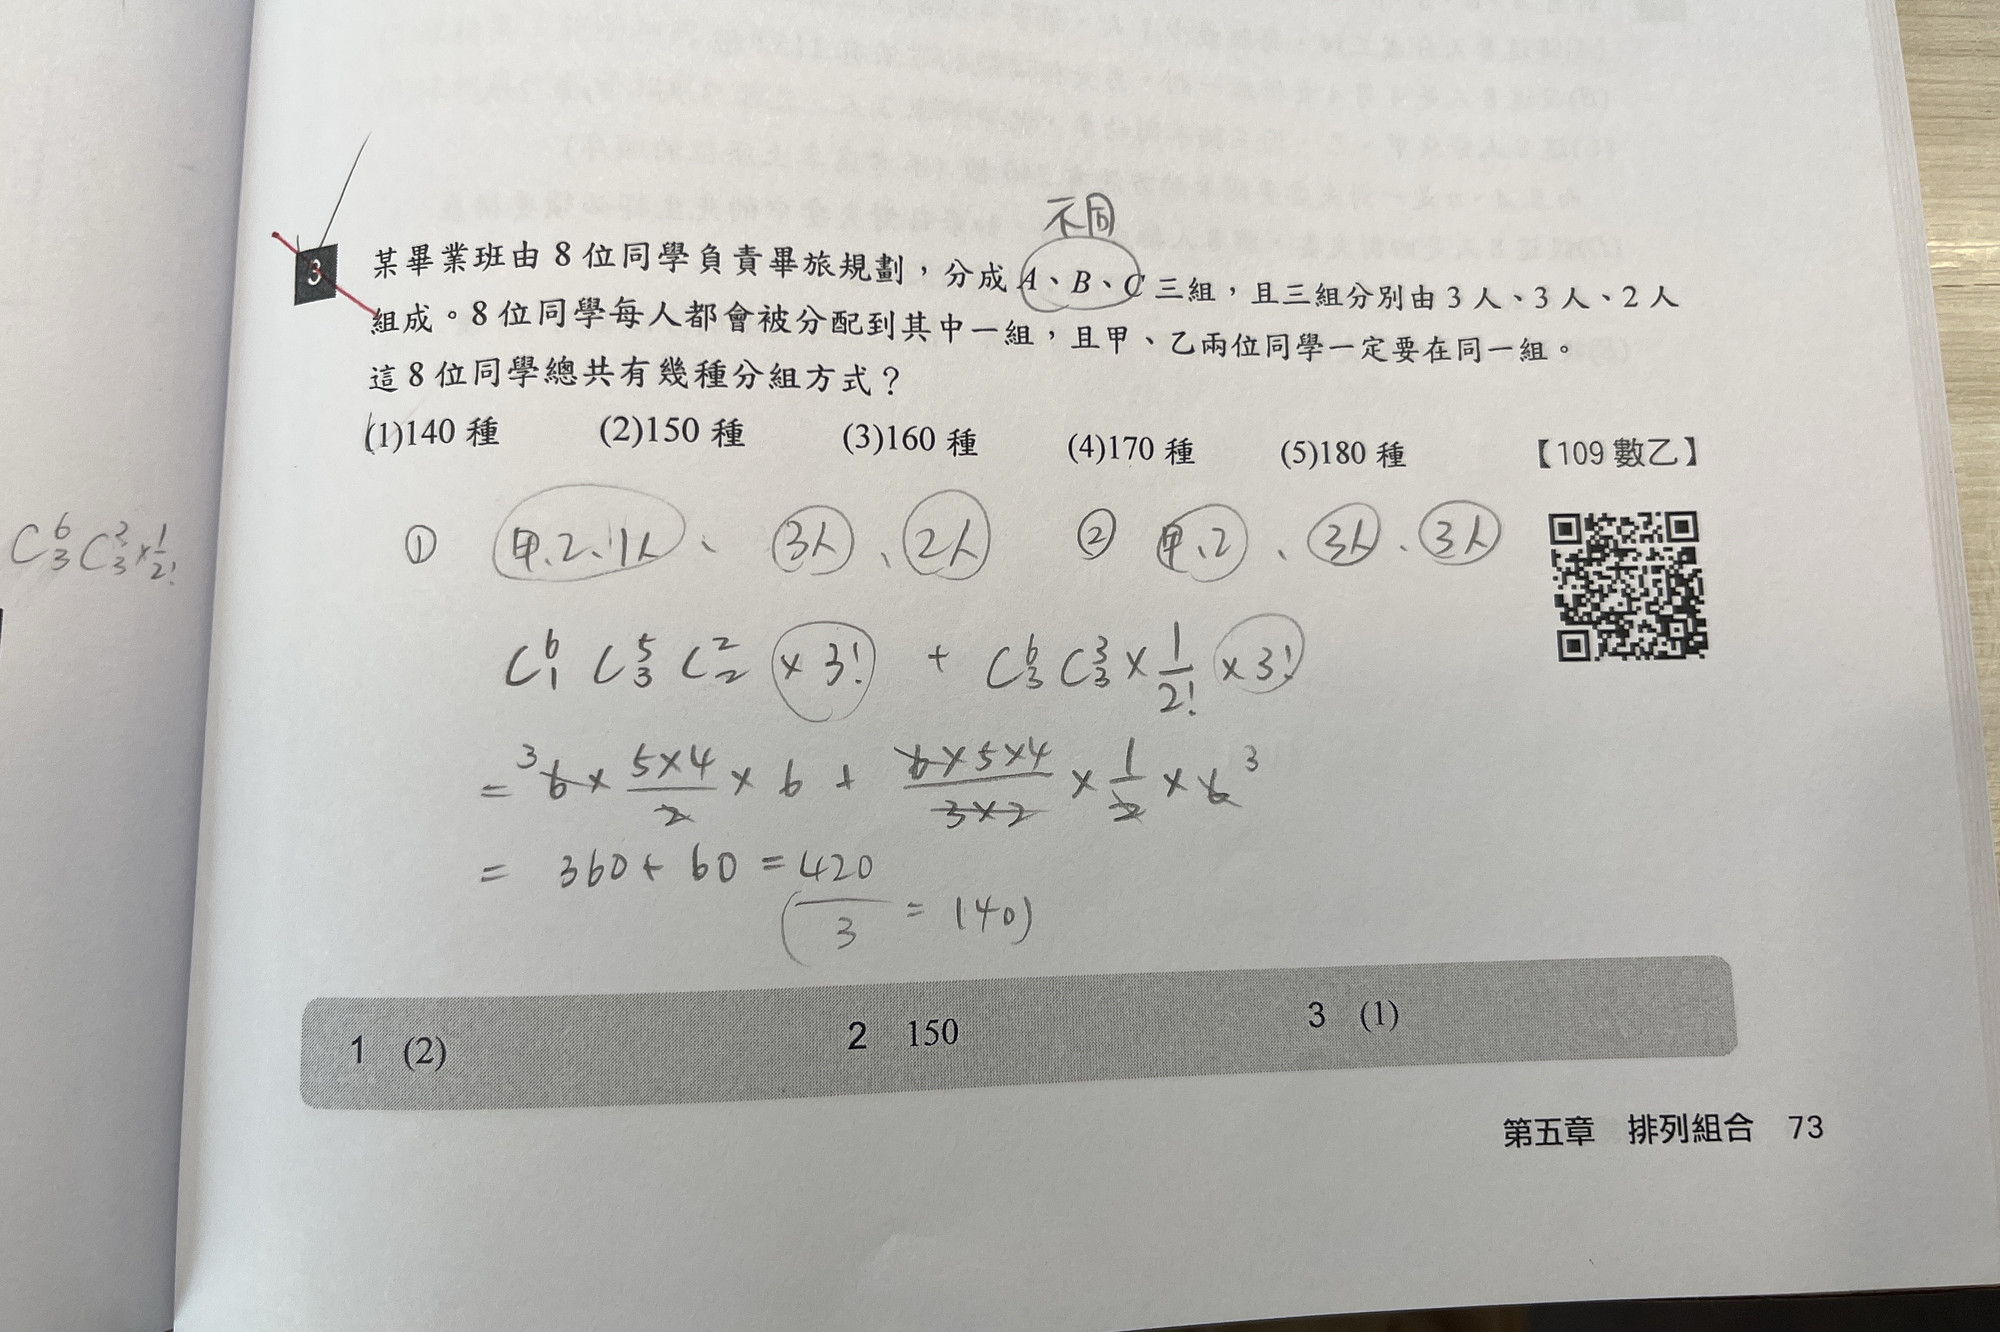 不同
3 某畢業班由 8 位同學負責畢旅規劃，分成 A、B、C 三組，且三組分別由 3 人、3 人、2 人
組成。8 位同學每人都會被分配到其中一組，且甲、乙兩位同學一定要在同一組。
這 8 位同學總共有幾種分組方式？
(1)140 種 (2)150 種 (3)160 種 (4)170 種 (5)180 種 【109 數乙】
① 甲、乙、1人、3人、2人 ② 甲、乙、3人、3人
C⁶₃ C³₃ × 1/2!
C⁶₁ C⁵₃ C²₂ × 3! + C⁶₃ C³₃ × 1/2! × 3!
= ³6 × 5×4/2 × 6 + 6×5×4/3×2 × 1/2 × 6 ³
= 360 + 60 = 420
( /3 = 140)
1 (2) 2 150 3 (1)
第五章 排列組合 73